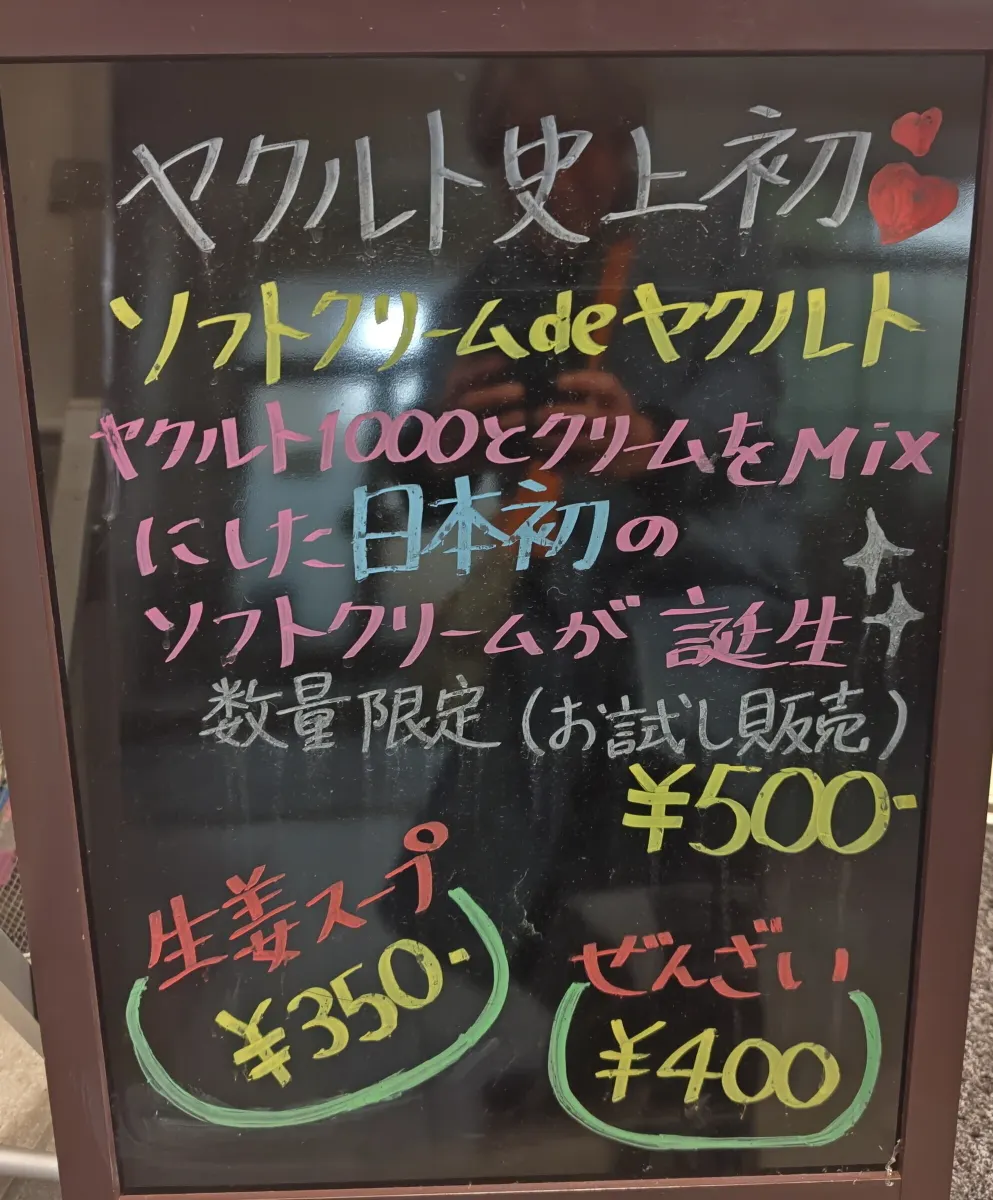 ヤクルト史上初
ソフトクリームdeヤクルト
ヤクルト1000とクリームをMix
にした日本初の
ソフトクリームが誕生
数量限定(お試し販売)
¥500-
生姜スープ
¥350-
ぜんざい
¥400